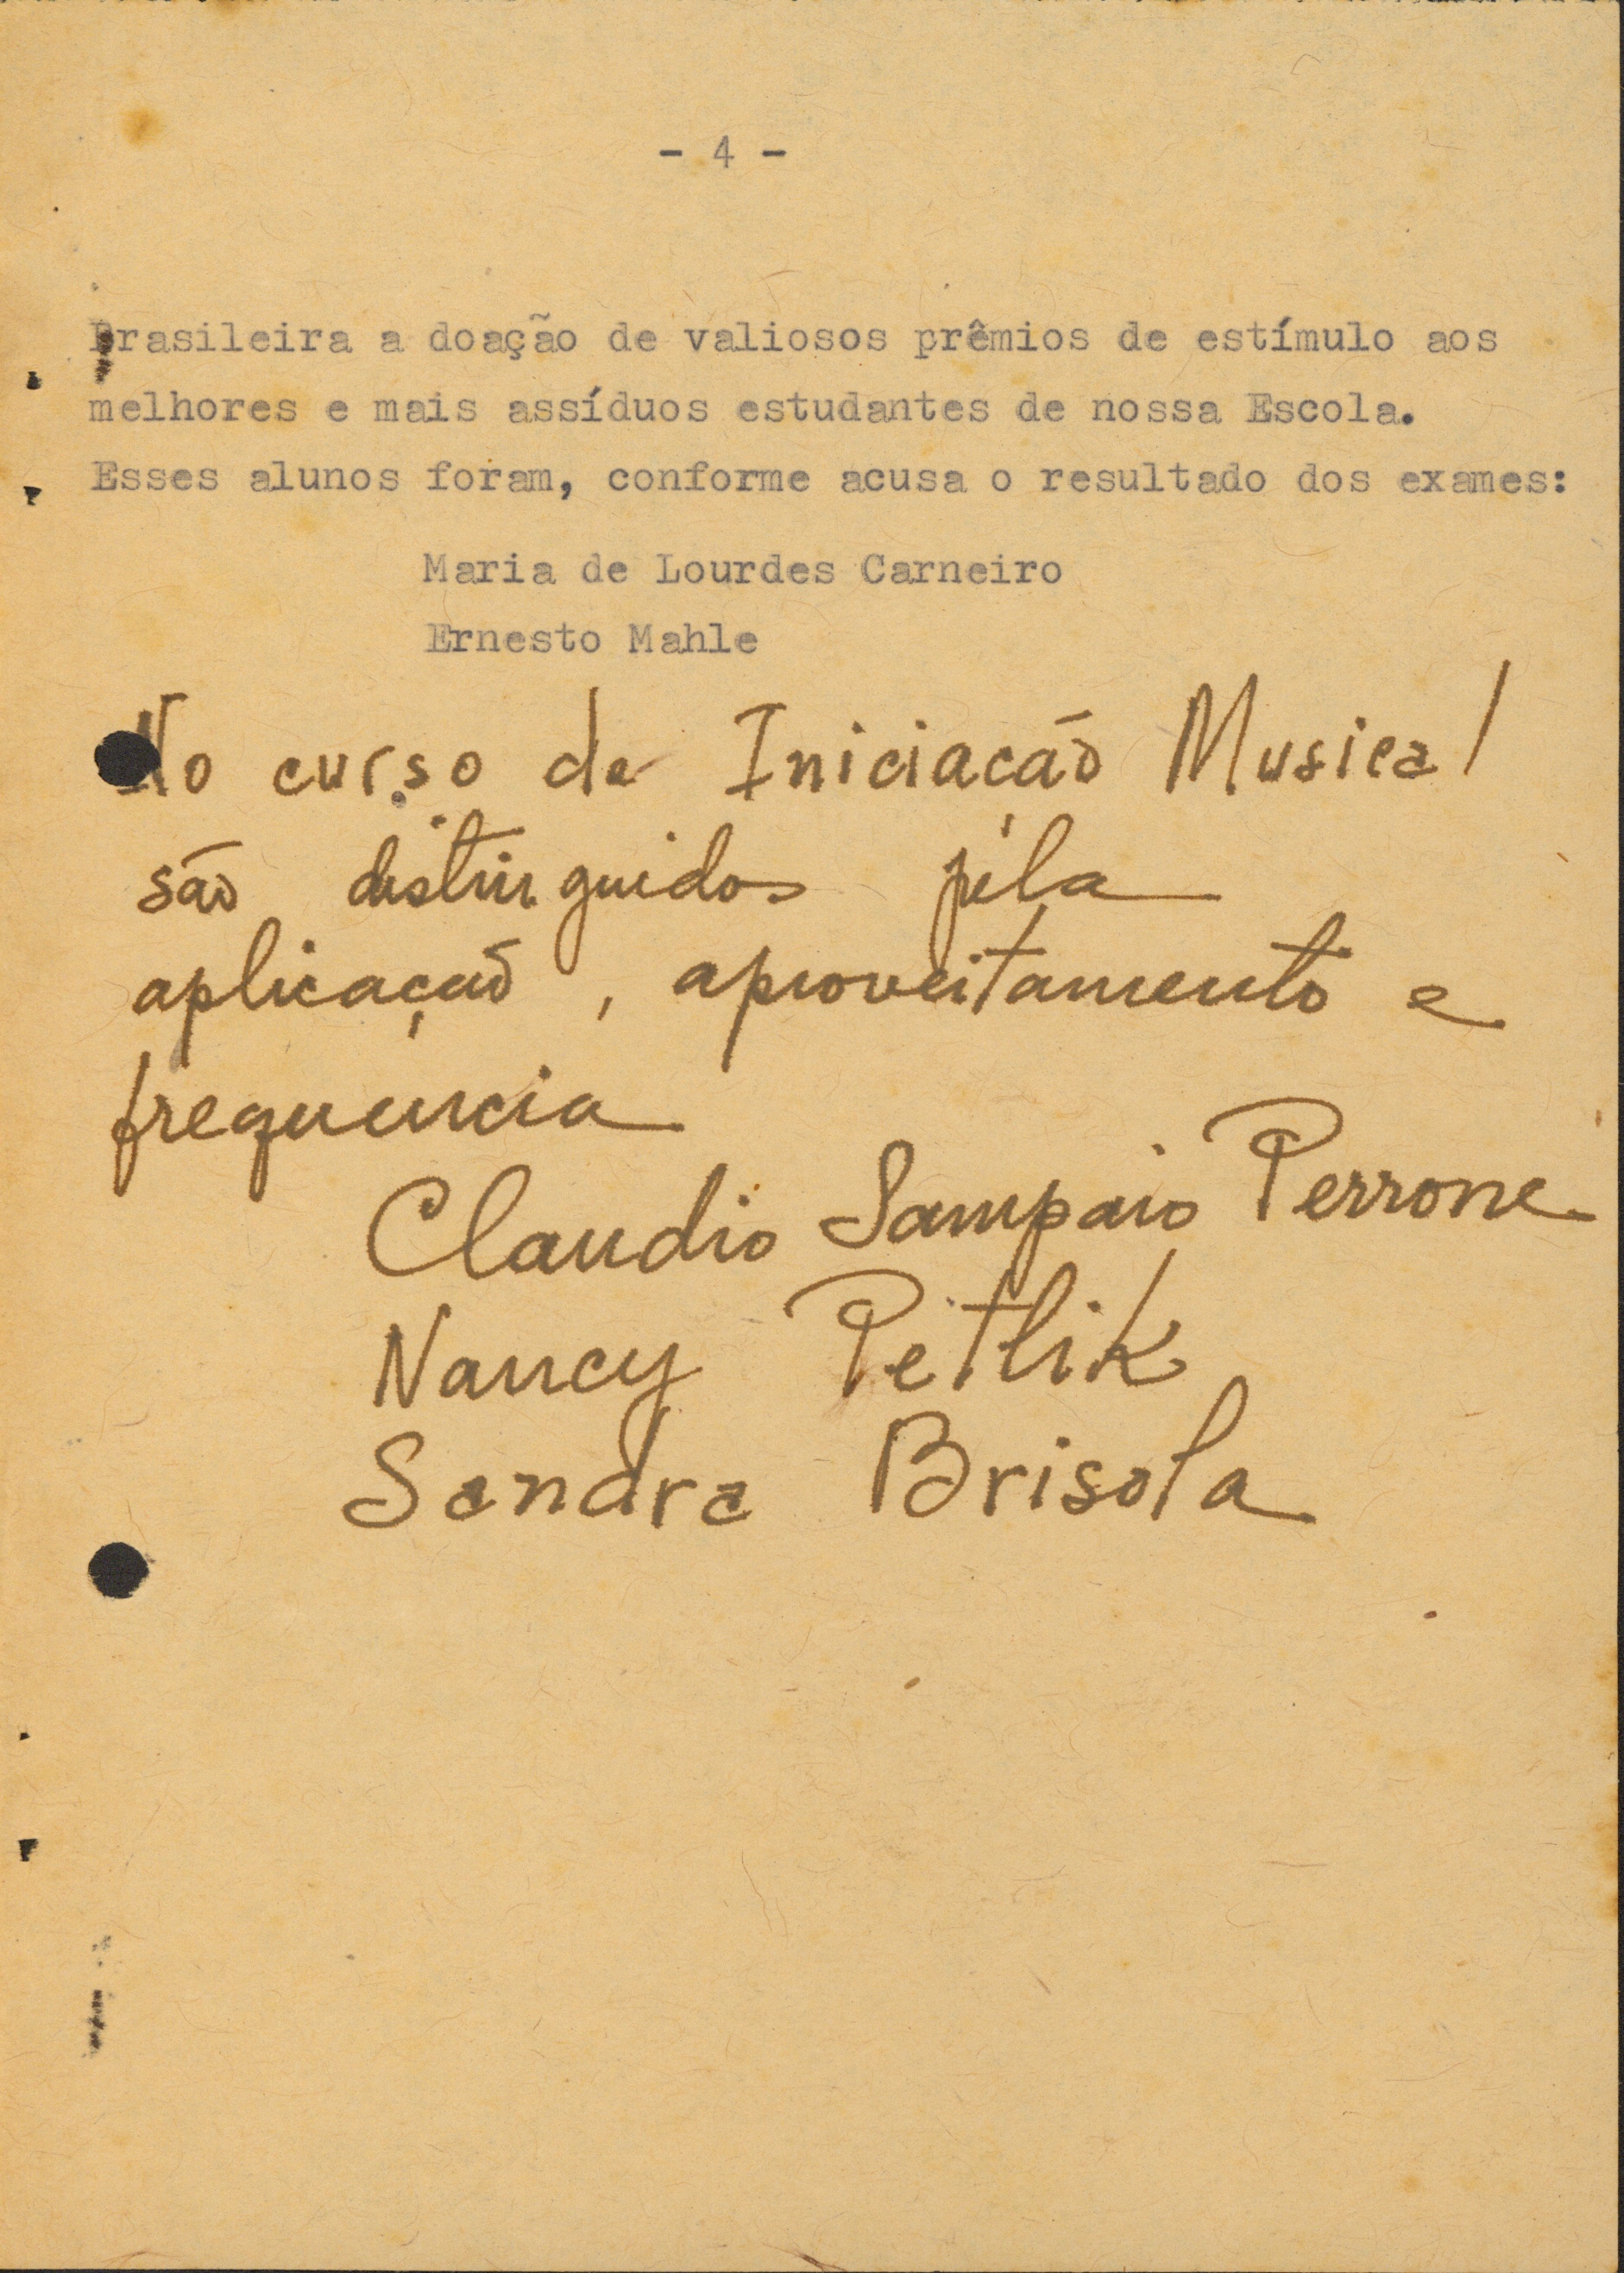 - 4 -
Brasileira a doação de valiosos prêmios de estímulo aos
melhores e mais assíduos estudantes de nossa Escola.
Esses alunos foram, conforme acusa o resultado dos exames:
Maria de Lourdes Carneiro
Ernesto Mahle
No curso de Iniciação Musical
são distinguidos pela
aplicação, aproveitamento e
frequencia
Claudio Sampaio Perrone
Nancy Petlik
Sandra Brisola